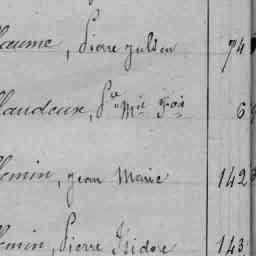 laume, Pierre Julien 74
laudeux, Pre Mie Fois 6
lemin, Jean Marie 142
lemin, Pierre Isidore 143